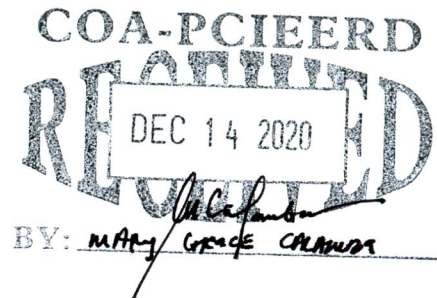 COA-PCIEERD
RECEIVED
DEC 14 2020
BY: MARY GRACE